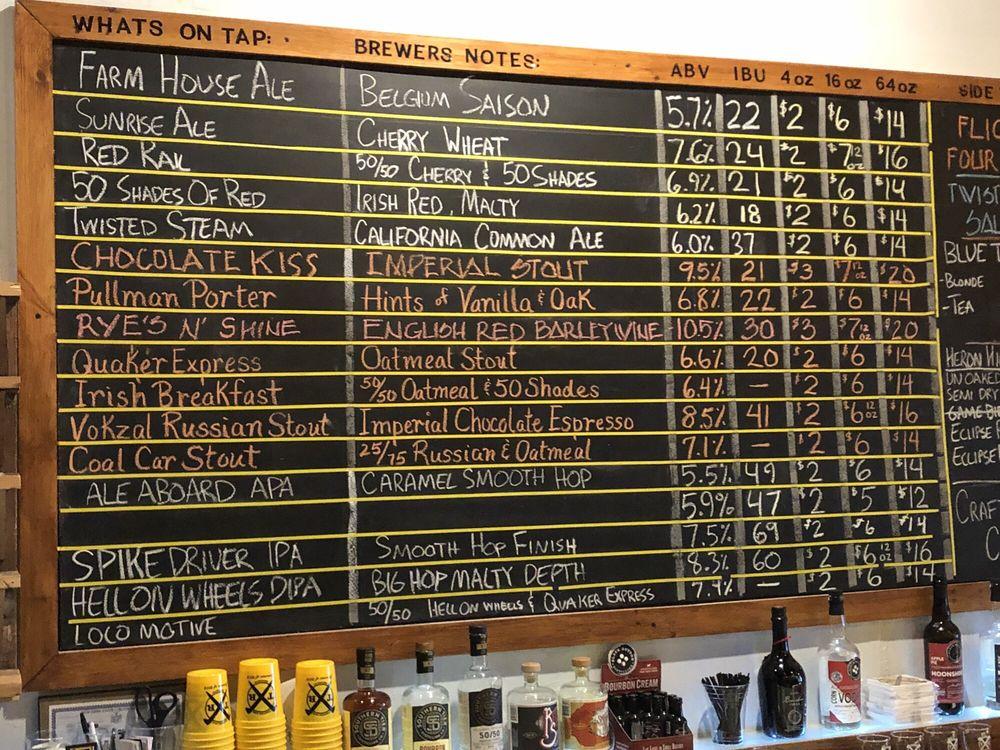 WHATS ON TAP: BREWERS NOTES: ABV IBU 4oz 16oz 64oz SIDE
FARM HOUSE ALE BELGIUM SAISON 5.7% 22 $2 $6 $14
SUNRISE ALE CHERRY WHEAT 7.6% 24 $2 $7 12oz $16
RED RAIL 50/50 CHERRY & 50 SHADES 6.9% 21 $2 $6 $14
50 SHADES OF RED IRISH RED, MALTY 6.2% 18 $2 $6 $14
TWISTED STEAM CALIFORNIA COMMON ALE 6.0% 37 $2 $6 $14
CHOCOLATE KISS IMPERIAL STOUT 9.5% 21 $3 $7 12oz $20
Pullman Porter Hints of Vanilla & Oak 6.8% 22 $2 $6 $14
RYE'S N' SHINE ENGLISH RED BARLEYWINE 10.5% 30 $3 $7 12oz $20
Quaker Express Oatmeal Stout 6.6% 20 $2 $6 $14
Irish Breakfast 50/50 Oatmeal & 50 Shades 6.4% — $2 $6 $14
Vokzal Russian Stout Imperial Chocolate Espresso 8.5% 41 $2 $6 12oz $16
Coal Car Stout 25/75 Russian & Oatmeal 7.1% — $2 $6 $14
ALE ABOARD APA CARAMEL SMOOTH HOP 5.5% 49 $2 $6 $14
5.9% 47 $2 $5 $12
SPIKE DRIVER IPA SMOOTH HOP FINISH 7.5% 69 $2 $6 $14
HELL ON WHEELS DIPA BIG HOP MALTY DEPTH 8.3% 60 $2 $6 12oz $16
LOCO MOTIVE 50/50 HELL ON WHEELS & QUAKER EXPRESS 7.4% — $2 $6 $14
FOUR
BLUE T
-BLONDE
-TEA
HERON
UNOAKED
SEMI DRY
ECLIPSE
ECLIPSE
CRAF
BOURBON CREAM
50/50
APPLE PIE
MOONSHI